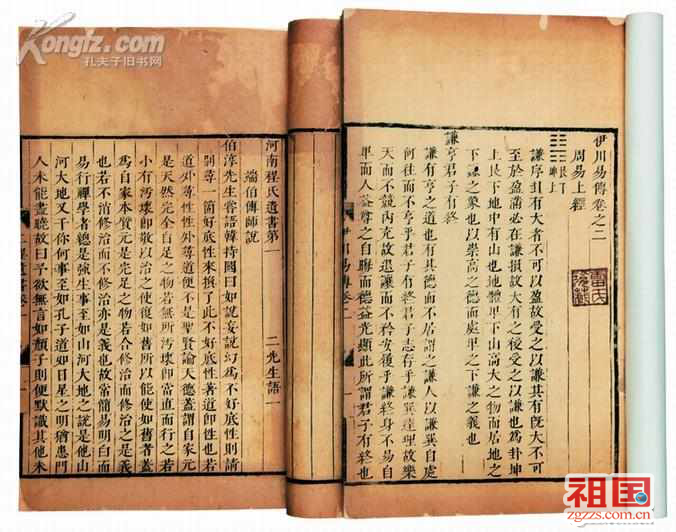 伊川易傳卷之二
周易上經
艮下
坤上
謙序卦有大者不可以盈故受之以謙其有旣大不可
至於盈滿必在謙損故大有之後受之以謙也爲卦坤
上艮下地中有山也地體卑下山高大之物而居地之
下謙之象也以崇高之德而處卑之下謙之義也
謙亨君子有終
謙有亨之道也有其德而不居謂之謙人以謙巽自處
何往而不亨乎君子有終君子志存乎謙巽達理故樂
天而不競內充故退讓而不矜安履乎謙終身不易自
卑而人益尊之自晦而德益光顯此所謂君子有終也
伊川易傳卷二
河南程氏遺書第一
二先生語一
端伯傳師說
伯淳先生嘗語韓持國曰如說妄說幻爲不好底性則請
別尋一箇好底性來換了此不好底性著道卽性也若
道外尋性性外尋道便不是聖賢論天德蓋謂自家元
是天然完全自足之物若無所汚壞卽當直而行之若
小有汚壞卽敬以治之使復如舊所以能使如舊者蓋
爲自家本質元是完足之物若合修治而修治之是義
也若不消修治而不修治亦是義也故常簡易明白而
易行禪學者總是強生事至如山河大地之說是他山
河大地又干你何事至如孔子道如日星之明猶患門
人未能盡曉故曰予欲無言如顏子則便默識其他未
Kongfz.com
孔夫子旧书网
祖国
zgzzs.com.cn